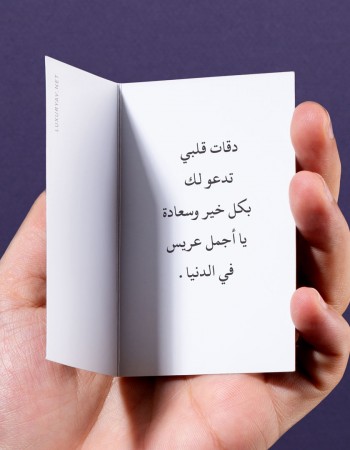 دقات قلبي
تدعو لك
بكل خير وسعادة
يا أجمل عريس
في الدنيا .
LUXURYBY.NET